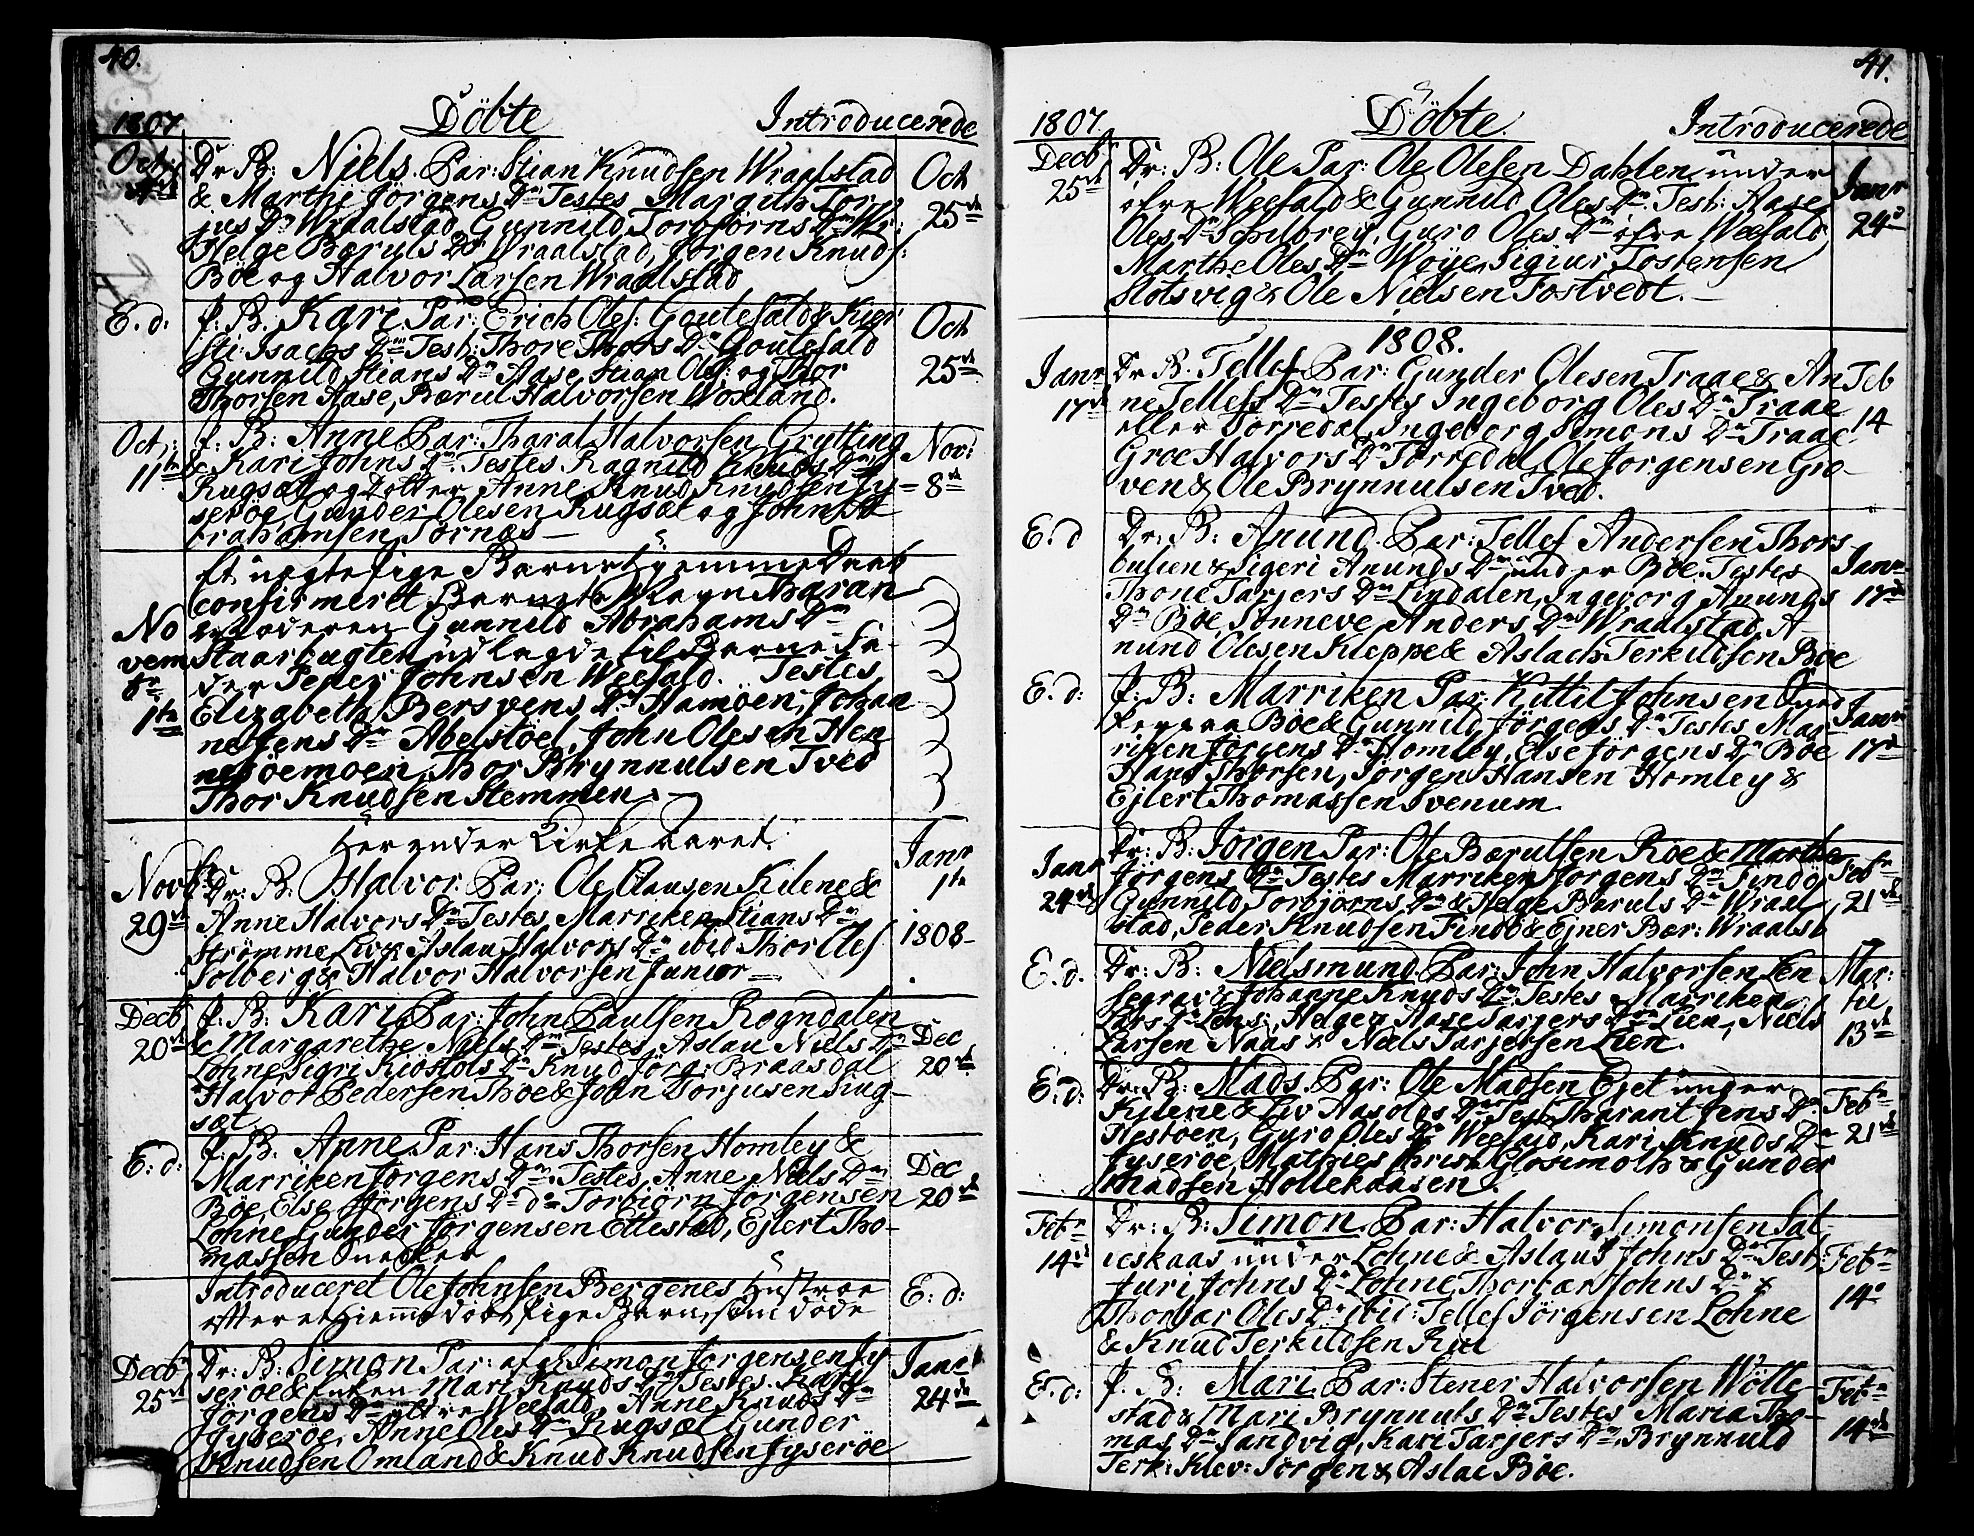 40.
1807
Döbte
Introducerede
Oct: 4de
Dr B: Niels. Par: Stian Knudsen Wraalstad
& Marthe Jørgens Dr Testes Margith Tor
jus Dr Wraalstad, Gunnild Torbjørns Dr
Helge Bæruls Dr Wraalstad, Jørgen Knuds:
Böe og Halvor Larsen Wraalstad
Oct 25de
E. d:
P. B. Kari Par: Erich Oles: Goutefald & Kier
sti Isachs Dr Test: Thore Thors Dr Goutefald
Gunnild Stians Dr Aase, Stian Ols: og Thor
Thorsen Aase, Bærul Halvorsen Woxland.
Oct 25de
Oct: 11te
P. B: Anne Par: Tharal Halvorsen Grytting
& Kari Johns Dr. Testes Ragnild Knuds Dr
Rugsæt og Dotter Anne, Knud Knudsen Jy-
seröe, Gunder Olesen Rugsæt og John A
brahamsen Tornæs
Nov: 8de
Novembr 1te
Et uægte Pige Barns Hjemme Daab
confirmeret Barnets Navn Tharan
Moderen Gunnild Abrahams Dr
Staarbugten udlagde til Barne Fa-
der Peder Johnsen Weefald. Testes
Elizabeth Bersvens Dr Hamoen, Johan
ne Jens Dr Abelstoel, John Olesen Hen
neföemoen, Thor Brynnulsen Tved
Thor Knudsen Stemmen.
Her ender Kirke Aaret.
Novb 29de
Dr: B. Halvor. Par: Ole Clausen Kilene &
Anne Halvors Dr Testes Marriken Stians Dr
Strømme, Liv & Aslau Halvors Dr ibid Thor Oles
Solberg & Halvor Halvorsen Junior
Janr 1te 1808
Decb 20de
P. B: Kari Par: John Paulsen Rogndalen
& Margarethe Niels Dr Testes, Aslau Niels Dr
Lohne, Sigri Kiöstols Dr Knud Jörg: Braasdal
Halvor Pedersen Thoe & John Torjusen Rug-
sæt
Dec 20de
E: d:
P. B. Anne Par: Hans Thorsen Homley &
Marriken Jørgens Dr. Testes, Anne Niels Dr
Böe, Else Jørgens Dr do Torbiörn Jørgensen
Lohne, Gunder Jørgensen Ettestad, Ejlert Tho-
massen
Dec 20de
Introduceret Ole Johnsen Bergenes Hustroe
efter et Hjemmedöbt Pige Barn, som döde
E: d:
Decb 25de
Dr: B: Simon Par: afg: Simon Jørgensen Jy
seröe & Enken Mari Knuds Dr Testes. Kari
Jörgens Dr Weefald, Anne Knuds Dr
Jyseröe, Anne Oles Dr Rugsæt, Gunder
Knudsen Omland & Knud Knudsen Jyseröe
Janr 24de
41.
1807
Döbte.
Introducerede
Decb 25de
Dr: B: Ole Par: Ole Olesen Dahlen under
öfre Weefald & Gunnild Oles Dr. Test: Aase
Oles Dr Schibrej, Guro Oles Dr öfre Weefald
Marthe Oles Dr Wöye, Sigiur Tostensen
Slotsvig & Ole Nielsen Tostvedt.
Janr 24de
1808.
Janr 17de
Dr B. Tellef Par: Gunder Olesen Traae & An
ne Tellefs Dr Testes Ingeborg Oles Dr Traae
eller Torredal, Ingeborg Simons Dr Traae
Groe Halvors Dr Torredal, Ole Jørgensen Gro-
ven & Ole Brynnulsen Tved.
Feb 14
E. d
Dr: B: Anund. Par: Tellef Andersen Thors
bulien & Sigeri Anunds Dr under Böe. Testes
Thone Tarjers Dr Lindalen, Ingeborg Anunds
Dr Böe, Sönneve Anders Dr Wraalstad, A-
nund Olesen Kleppe & Aslach Terkildsen Böe
Janr 17de
E. d:
P: B: Marriken Par: Kittil Johnsen
Böe & Gunnild Jörgens Dr Testes Mar-
riken Jörgens Dr Homley, Else Jørgens Dr Böe
Hans Thorsen, Jørgen Hansen Homley &
Ejlert Thomassen Svenum
Janr 17de
Janr 24de
Dr: B: Jörgen Par: Ole Bærulsen Böe & Marthe
Jörgens Dr Testes Marriken Jørgens Dr Findö
Gunnild Torbjørns Dr & Helge Bæruls Dr Wraal
stad, Peder Knudsen Findö & Ejner Bær: Wraalst
Febr 21de
E. d.
Dr: B: Nielsmund. Par: John Halvorsen Lön
segrav & Johanne Knuds Dr Testes Marriken
Lars Dr Löns: Helge & Aase Tarjers Dr Lien, Niels
Larsen Naas & Niels Tarjersen Lien.
Martii 13de
E: d:
Dr: B: Mads. Par: Ole Madsen Ejet under
Kilene & Liv Aasolds Dr Test: Tharant Jens Dr
Hestoen, Guro Oles Dr Weefald, Kari Knuds Dr
Jyseröe, Mathies Christ: Glosimoth & Gunder
Madsen Hollekaasen.
Febr 21de
Febr 14de
Dr: B: Simon. Par: Halvor Simonsen Sat-
ieskaas under Lohne & Aslaug Johns Dr Test:
Juri Johns Dr Lohne, Thorbær Johns Dr &
Thorbær Oles Dr ibid: Tellef Jörgensen Lohne
& Knud Terkildsen Riis
Febr 14de
E. d:
P. B: Mari Par: Stener Halvorsen Wölle
stad & Mari Brynnuls Dr Testes Maria Tho-
mas Dr Sandvig, Kari Tarjers Dr Brynnuld
Terk: Klev: Jörgen & Aslac Böe.
Febr 14de